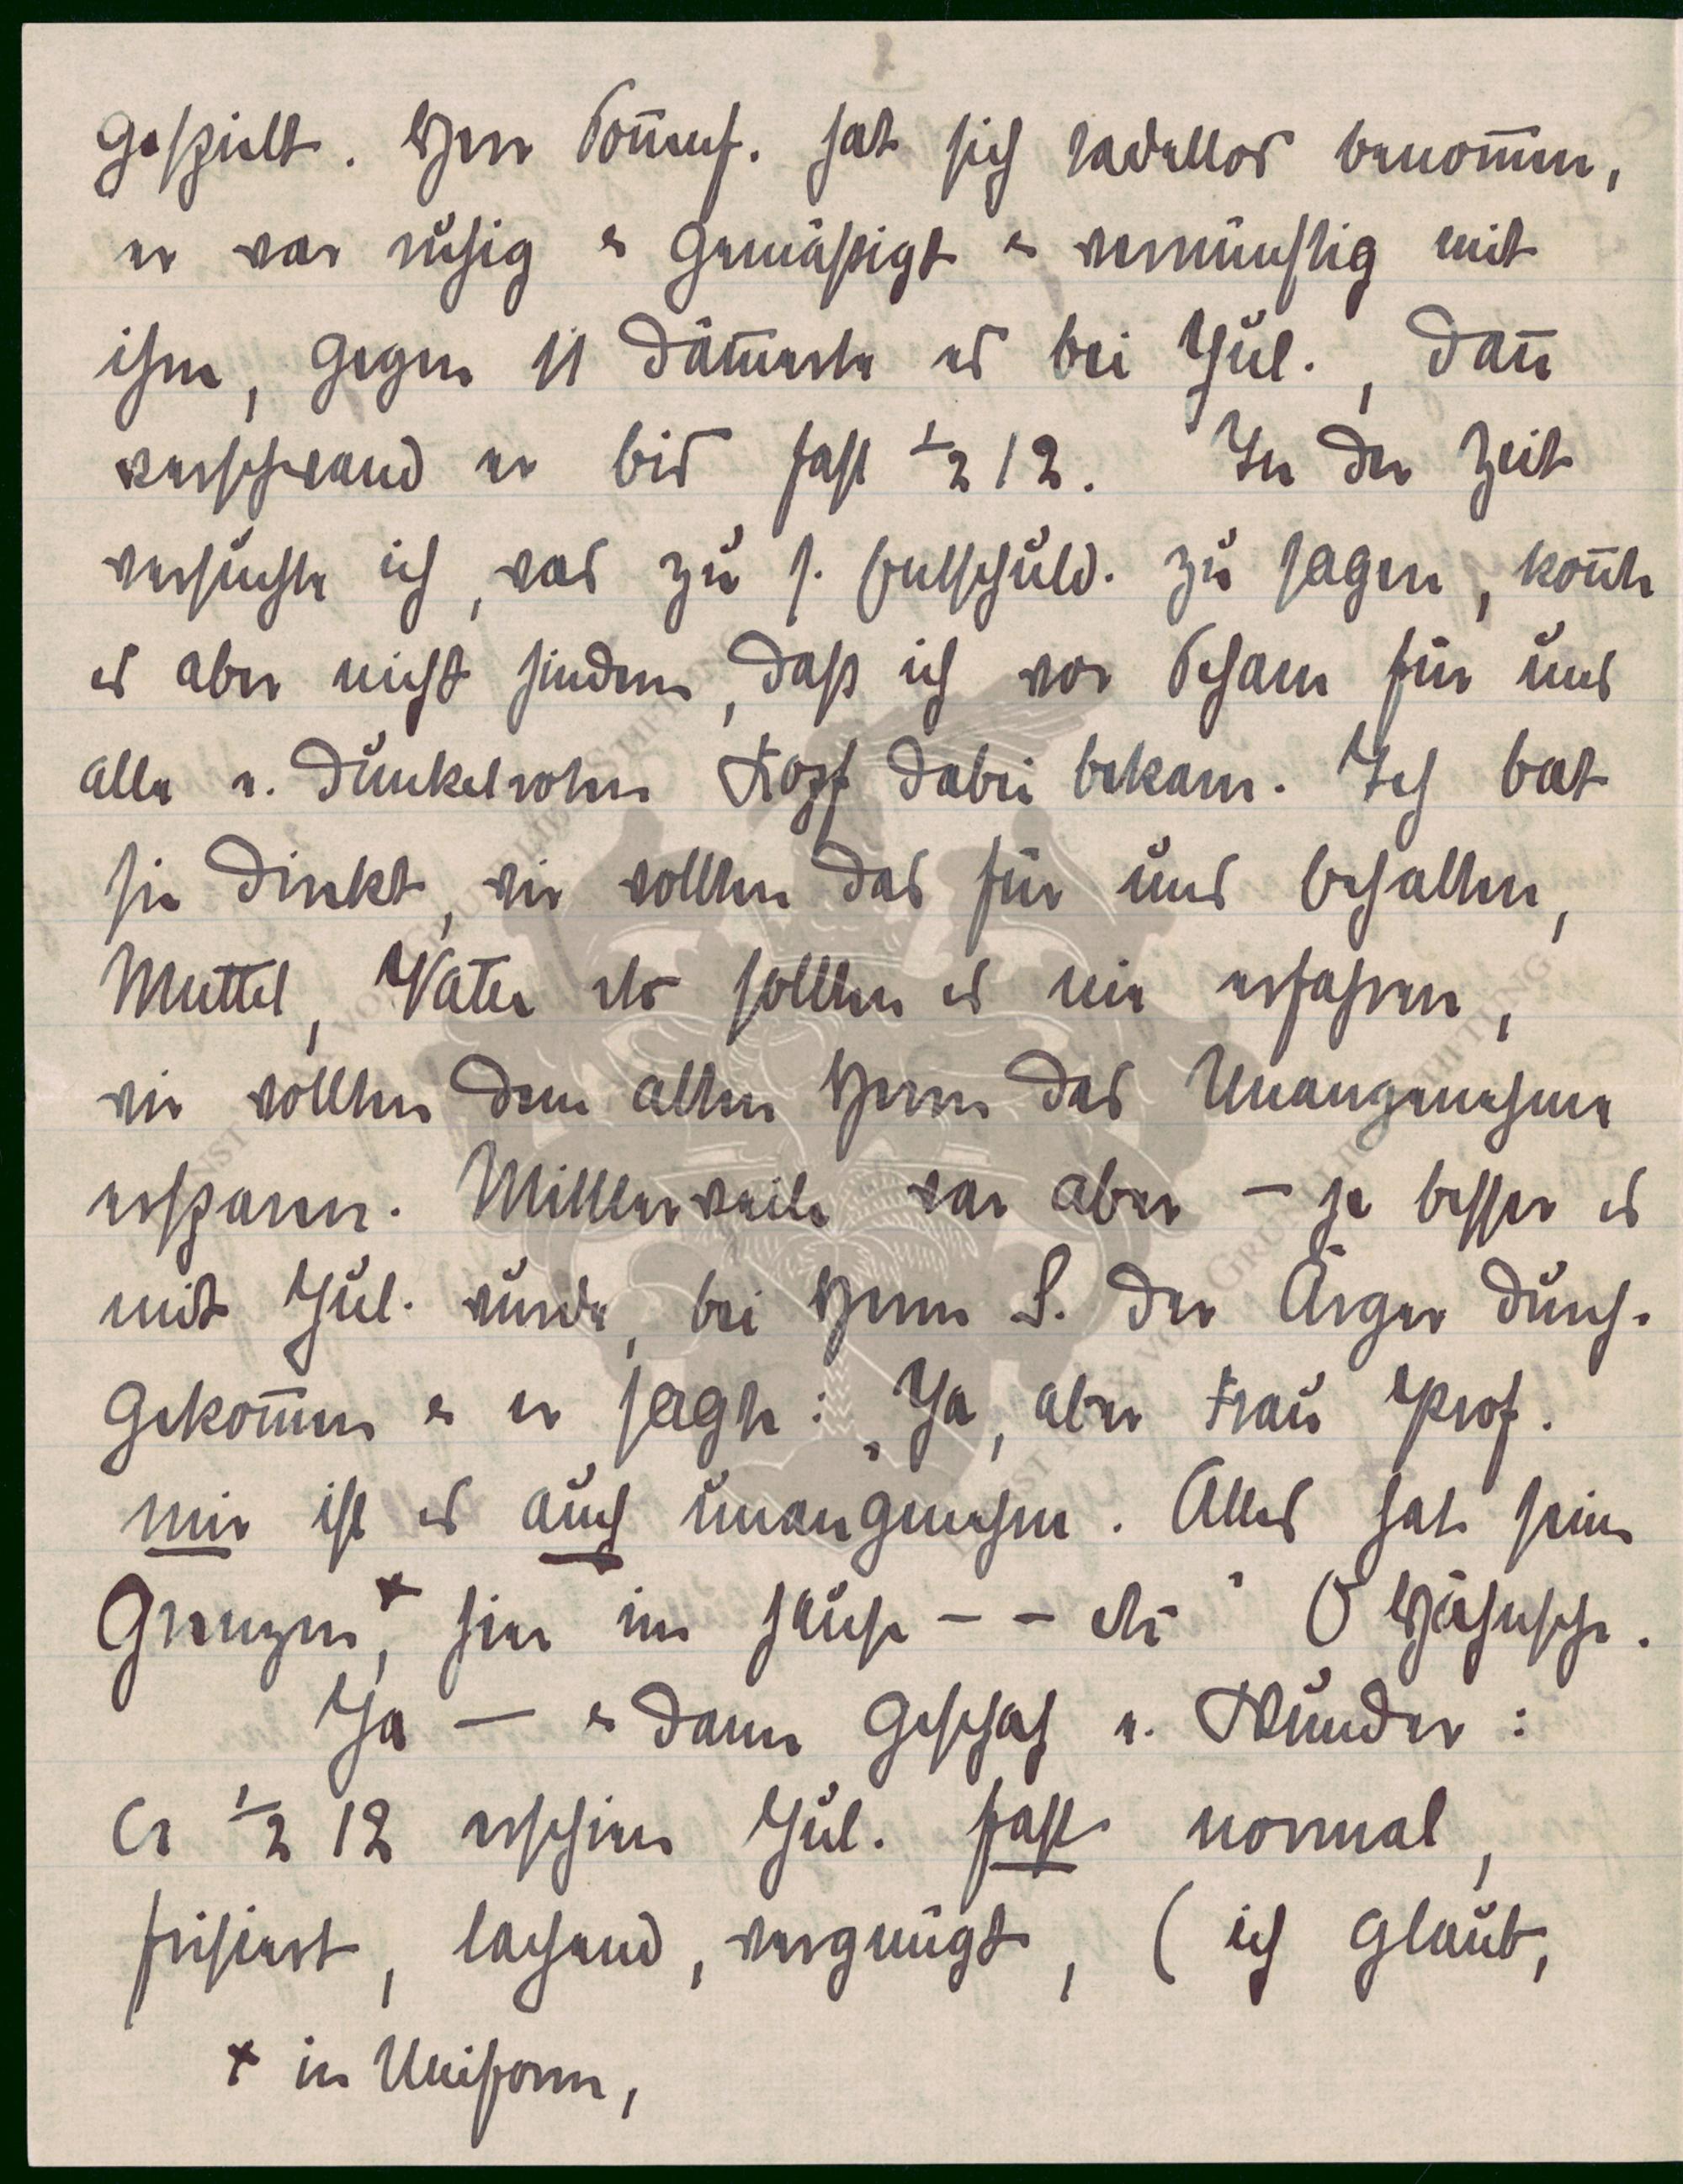 gespielt. Herr Somñf. hat sich tadellos benom̄en,
er war ruhig & gemäßigt & vernünftig mit
ihm, gegen 11 däm̄erte es bei Jul., dañ
verschwand er bis fast ½12. In der Zeit
versuchte ich, was zu s. Entschuld. zu sagen, koñte
es aber nicht hindern, daß ich vor Scham für uns
alle e. dunkelroten Kopf dabei bekam. Ich bat
sie direkt, wir wollten das für uns behalten,
Muttel, Vater etc sollten es nie erfahren,
wir wollten dem alten Herrn das Unangenehme
ersparen. Mittlerweile war aber – je besser es
mit Jul. wurde, bei Herrn S. der Ärger durch-
gekom̄en & er sagte: „Ja, aber Frau Prof.
mir ist es auch unangenehm. Alles hat seine
Grenzen,× hier im Hause – – etc" O Hähnsche.
Ja – & dann geschah e. Wunder:
Cr ½ 12 erschien Jul. fast normal,
frisiert, lachend, vergnügt, (ich glaub,
× in Uniform,